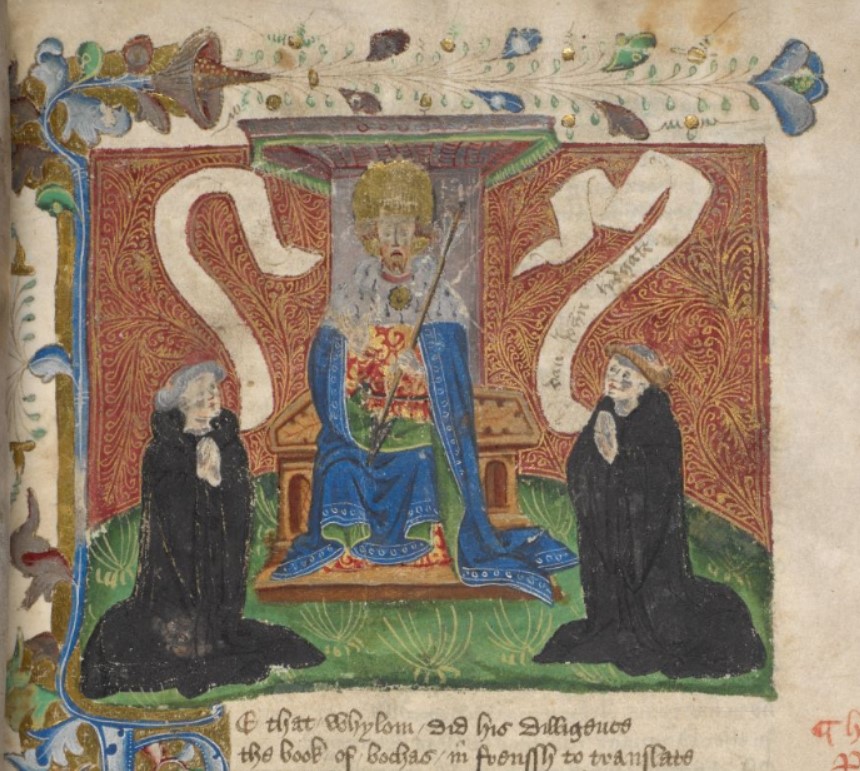 dan John lydgate
E that whylom / did his diligence
the book of bochas / in frenssh to translate